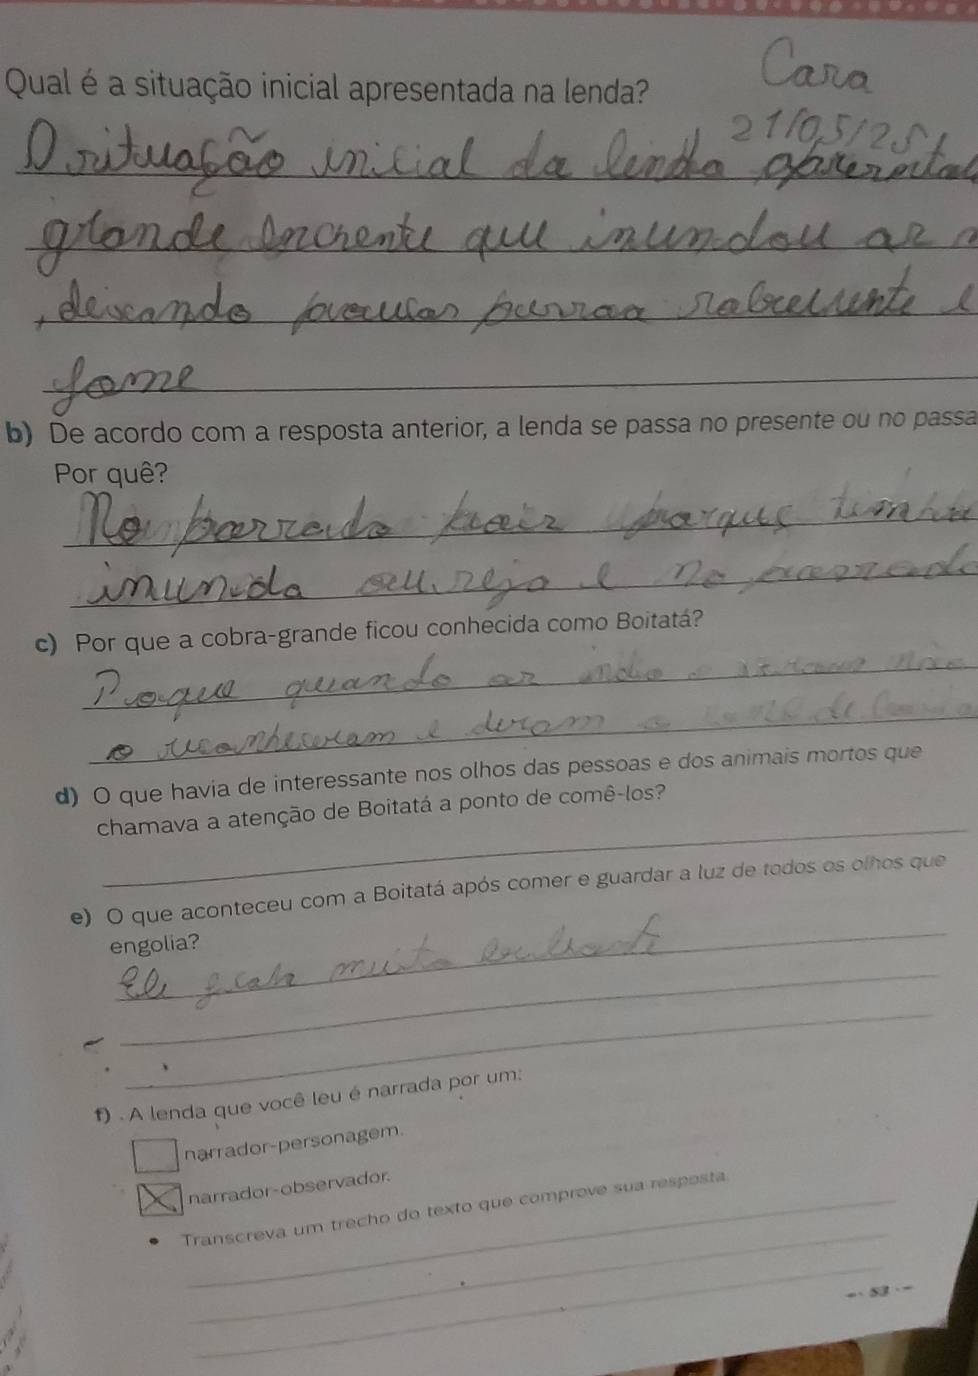 Cara
Qual é a situação inicial apresentada na lenda?
21/05/25
O situação inicial da lenda
grande enchente que inundou as
, deixando poucas sobrevivente e
fome
b) De acordo com a resposta anterior, a lenda se passa no presente ou no passa
Por quê?
No passado porque tinha
inunda ou seja e no passado
c) Por que a cobra-grande ficou conhecida como Boitatá?
Poque quando os
o reconheceram e deram
d) O que havia de interessante nos olhos das pessoas e dos animais mortos que
chamava a atenção de Boitatá a ponto de comê-los?
e) O que aconteceu com a Boitatá após comer e guardar a luz de todos os olhos que
engolia?
Ele muito
f) . A lenda que você leu é narrada por um:
narrador-personagem.
narrador-observador.
• Transcreva um trecho do texto que comprove sua resposta.
53